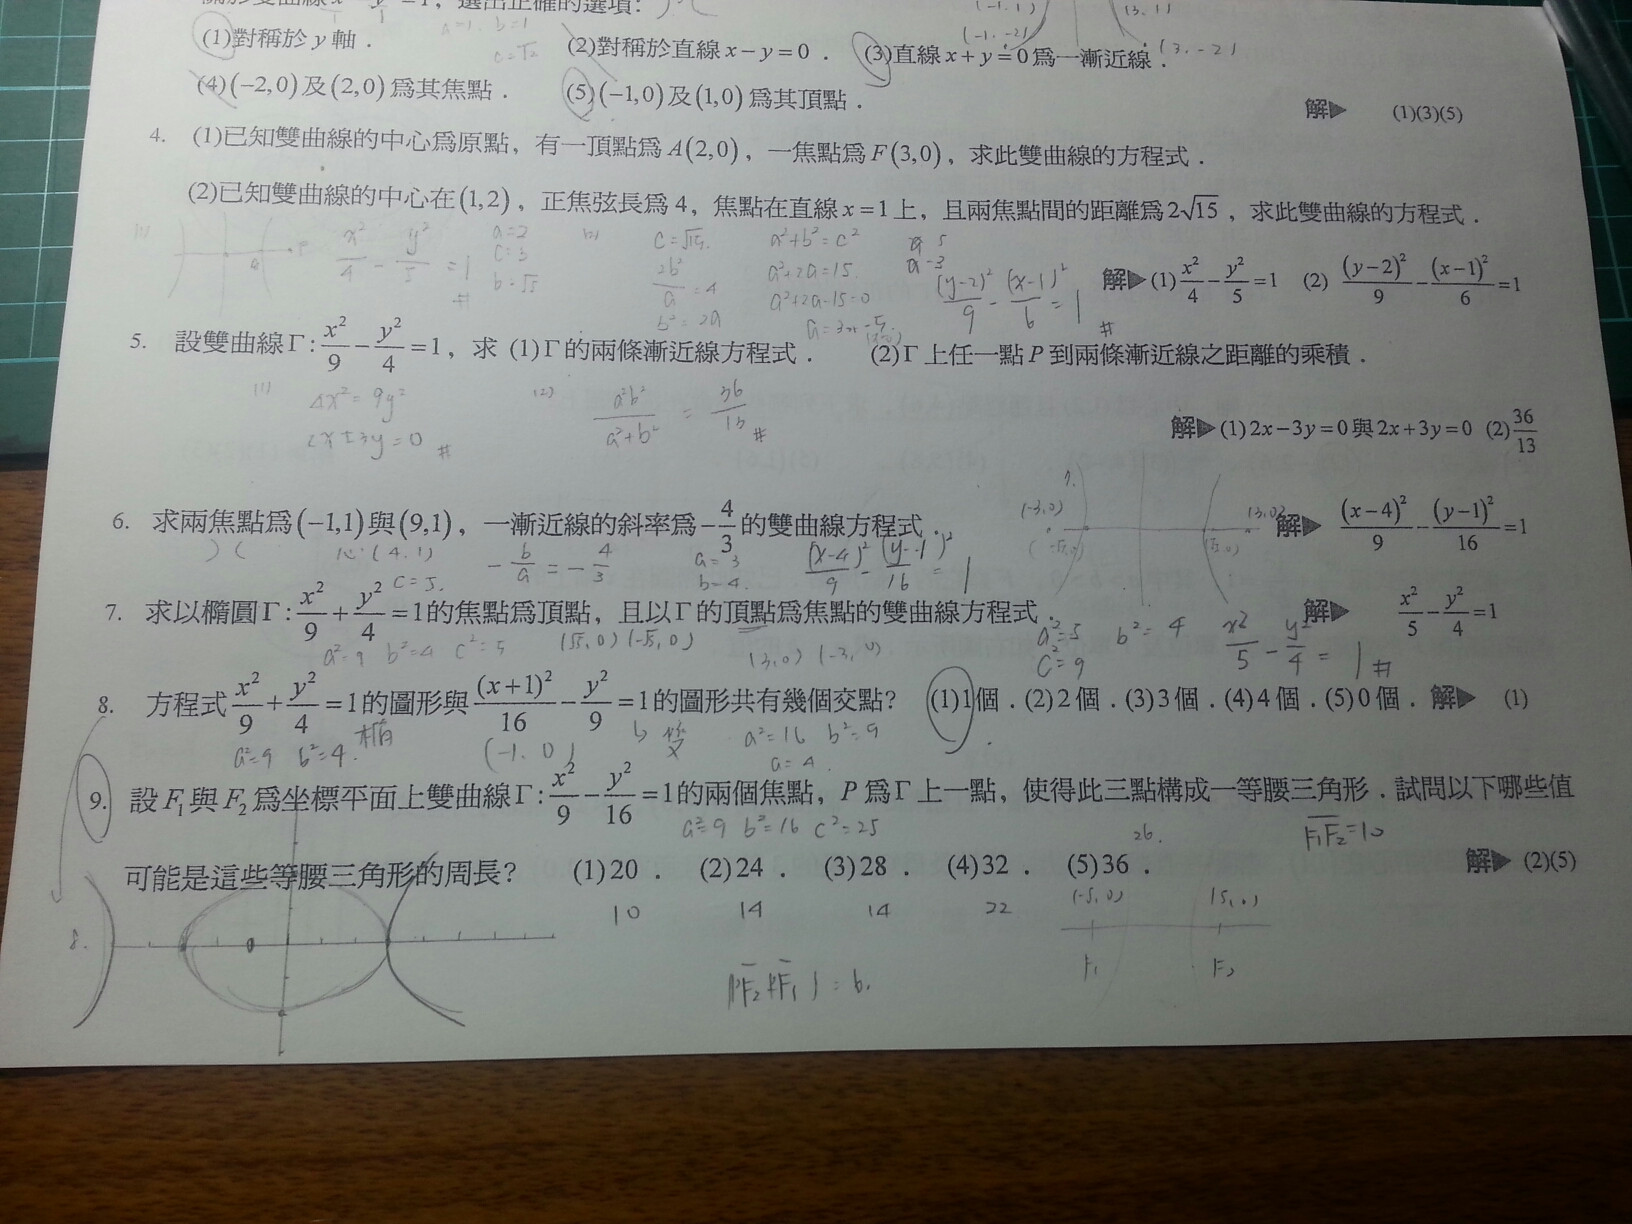 =1，選出正確的選項：
a=1. b=1
c=√2
(-1.1) (3.1)
(-1.-2) (3.-2)
(1)對稱於 y 軸． (2)對稱於直線 x−y=0． (3)直線 x+y=0為一漸近線．
(4)(−2,0)及(2,0)為其焦點． (5)(−1,0)及(1,0)為其頂點．
解▶ (1)(3)(5)
4. (1)已知雙曲線的中心為原點，有一頂點為 A(2,0)，一焦點為 F(3,0)，求此雙曲線的方程式．
(2)已知雙曲線的中心在(1,2)，正焦弦長為 4，焦點在直線 x=1上，且兩焦點間的距離為 2√15，求此雙曲線的方程式．
(1) x²/4 − y²/5 = 1 #
a=2
c=3
b=√5
(2) c=√15.
2b²/a = 4
b²=2a
a²+b²=c²
a²+2a=15.
a²+2a-15=0
a=3or-5
(y-2)²/9 − (x-1)²/6 = 1 #
解▶ (1) x²/4 − y²/5 =1 (2) (y−2)²/9 − (x−1)²/6 =1
5. 設雙曲線Γ: x²/9 − y²/4 =1，求 (1)Γ的兩條漸近線方程式． (2)Γ上任一點 P 到兩條漸近線之距離的乘積．
(1) 4x²=9y²
2x±3y=0 #
(2) a²b²/(a²+b²) = 36/13 #
解▶ (1) 2x−3y=0 與 2x+3y=0 (2) 36/13
6. 求兩焦點為(−1,1)與(9,1)，一漸近線的斜率為 −4/3 的雙曲線方程式．
解▶ (x−4)²/9 − (y−1)²/16 =1
心:(4.1)
c=5.
−b/a = −4/3
a=3
b=4.
(x-4)²/9 − (y-1)²/16 = 1
7.
(-3,0) (3,0)
(-√5,0) (√5,0)
7. 求以橢圓Γ: x²/9 + y²/4 =1的焦點為頂點，且以Γ的頂點為焦點的雙曲線方程式．
解▶ x²/5 − y²/4 =1
a²=9 b²=4 c²=5 (√5,0) (-√5,0)
(3,0) (-3,0)
a²=5 b²=4
c²=9
x²/5 − y²/4 = 1 #
8. 方程式 x²/9 + y²/4 =1的圖形與 (x+1)²/16 − y²/9 =1的圖形共有幾個交點？ (1)1個．(2)2個．(3)3個．(4)4個．(5)0個． 解▶ (1)
a²=9 b²=4. 橢
(-1.0)
雙
a²=16 b²=9
a=4.
9. 設 F₁與 F₂為坐標平面上雙曲線Γ: x²/9 − y²/16 =1的兩個焦點，P 為Γ上一點，使得此三點構成一等腰三角形．試問以下哪些值
a²=9 b²=16 c²=25
26.
F₁F₂=10
可能是這些等腰三角形的周長？ (1)20． (2)24． (3)28． (4)32． (5)36．
解▶ (2)(5)
10 14 14 22
(-5,0) (5,0)
F₁ F₂
8.